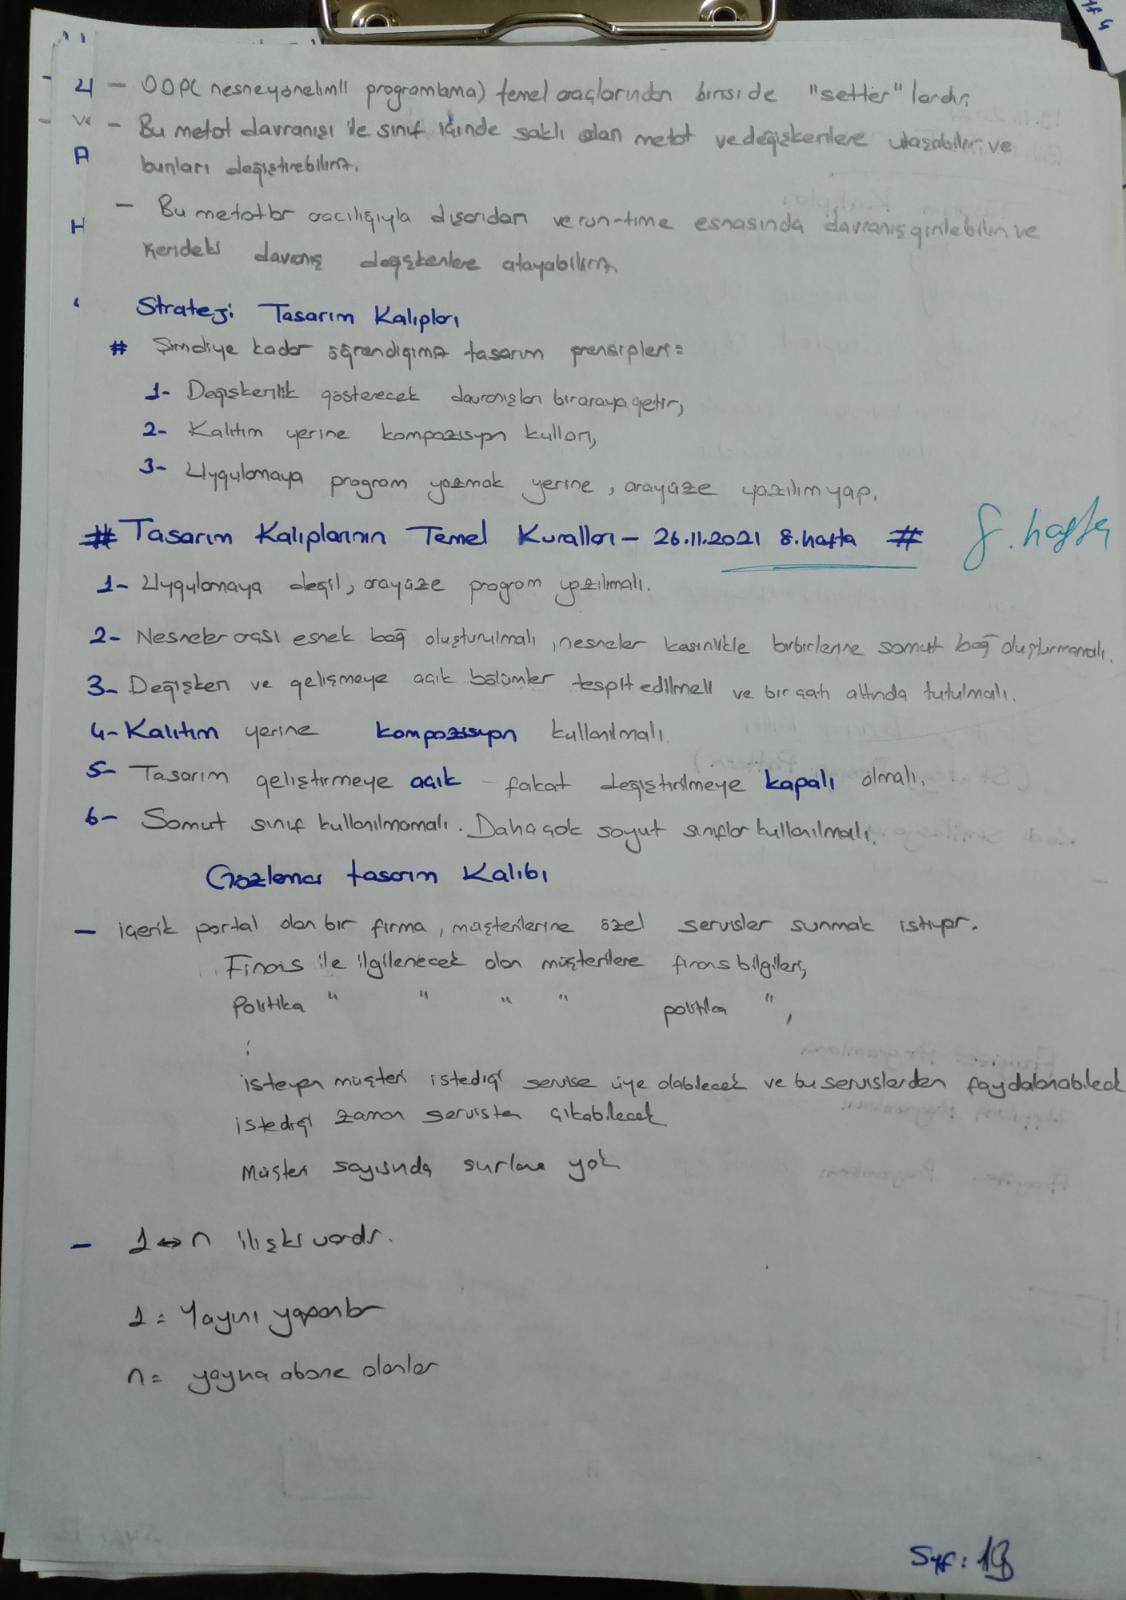 - OOP( nesneyönelimli programlama) temel araçlarından biriside "setter" lardır.
- Bu metot davranışı ile sınıf içinde saklı olan metot ve değişkenlere ulaşabilir ve
bunları değiştirebiliriz.
- Bu metotlar aracılığıyla dışarıdan ve run-time esnasında davranış girilebilir ve
davranış değişkenlere atayabiliriz.
Strateji Tasarım Kalıpları
# Şimdiye kadar öğrendiğimiz tasarım prensipleri:
1- Değişkenlik gösterecek davranışları biraraya getir,
2- Kalıtım yerine kompozisyon kullan,
3- Uygulamaya program yazmak yerine, arayüze yazılım yap.
# Tasarım Kalıplarının Temel Kuralları - 26.11.2021 8.hafta #
8.hafta
1- Uygulamaya değil, arayüze program yazılmalı.
2- Nesneler arası esnek bağ oluşturulmalı, nesneler kesinlikle birbirlerine somut bağ oluşturmamalı.
3- Değişken ve gelişmeye açık bölümler tespit edilmeli ve bir çatı altında tutulmalı.
4- Kalıtım yerine kompozisyon kullanılmalı.
5- Tasarım geliştirmeye açık fakat değiştirilmeye kapalı olmalı.
6- Somut sınıf kullanılmamalı. Daha çok soyut sınıflar kullanılmalı.
Gözlemci tasarım Kalıbı
- içerik portal olan bir firma, müşterilerine özel servisler sunmak istiyor.
Finans ile ilgilenecek olan müşterilere finans bilgileri,
Politika " " " " politika ",
:
isteyen müşteri istediği servise üye olabilecek ve bu servislerden faydalanabilecek
istediği zaman servisten çıkabilecek
Müşteri sayısında sınırlama yok
- 1 ↔ n ilişki vardır.
1 = Yayını yapanlar
n = yayına abone olanlar
Syf: 13